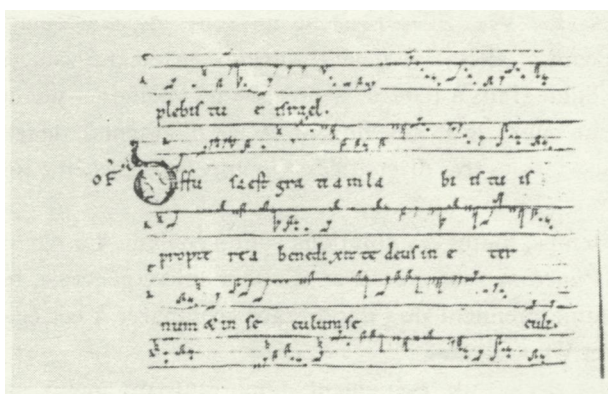 plebis tu e israel.
OF Diffu sa est gra tia in la bi is tu is
propte rea benedixit te deus in e ter
num & in se culum se culi.